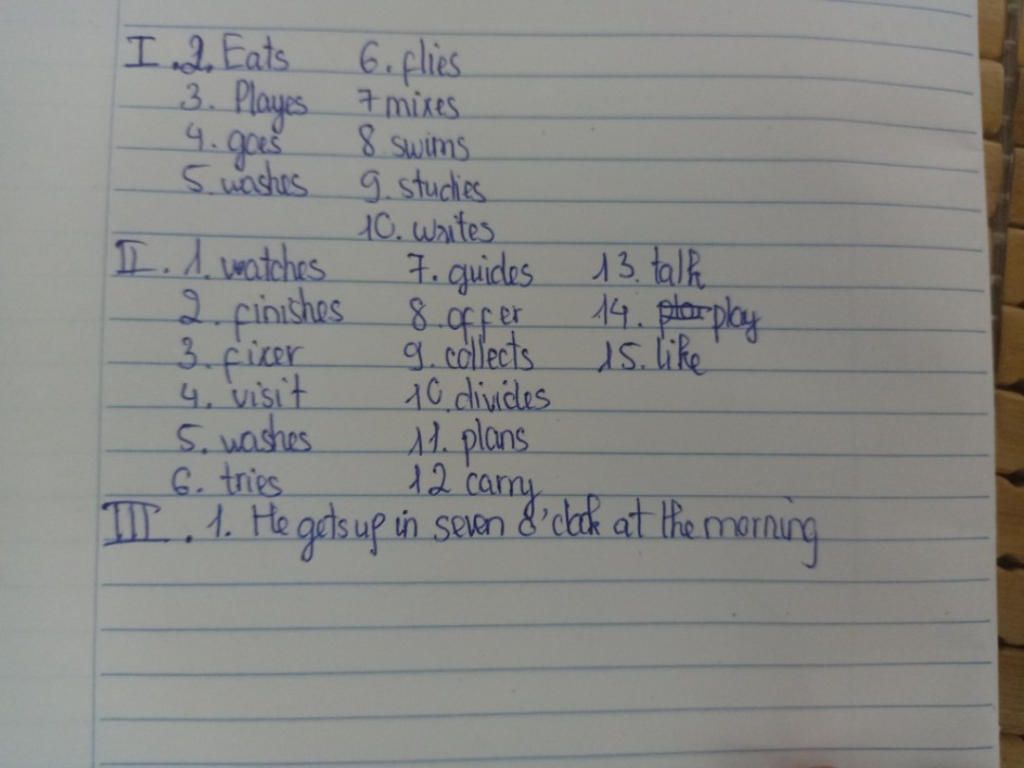 I. 2. Eats 6. flies
3. Playes 7 mixes
4. goes 8 swims
5. washes 9. studies
10. writes
II. 1. watches 7. guides 13. talk
2. finishes 8. offer 14. play
3. fixer 9. collects 15. like
4. visit 10. divides
5. washes 11. plans
6. tries 12 carry
III. 1. He gets up in seven o'clok at the morning